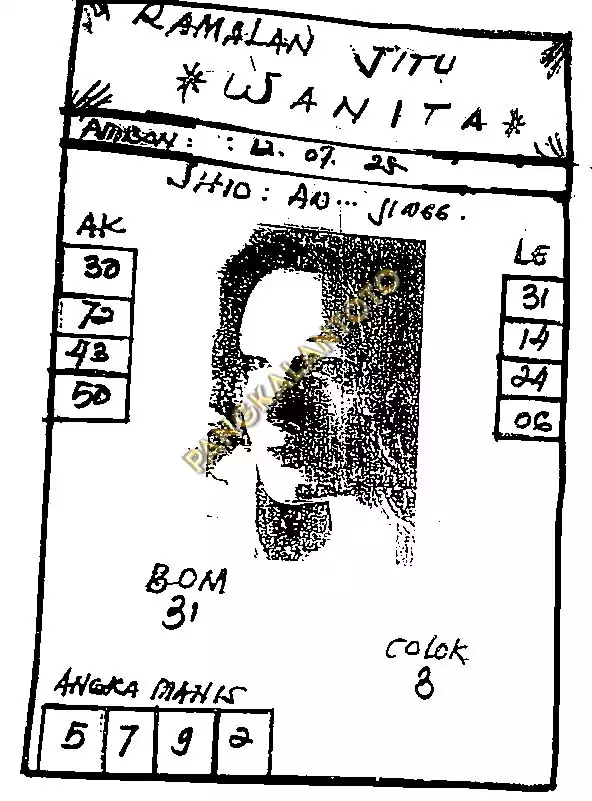 RAMALAN JITU
* WANITA *
AMBON: : 12. 07. 25
SHIO: AN... JINGG.
AK
30
72
43
50
LE
31
14
24
06
PANGKALANTOTO
BOM
31
COLOK
3
ANGKA MANIS
5 7 9 2